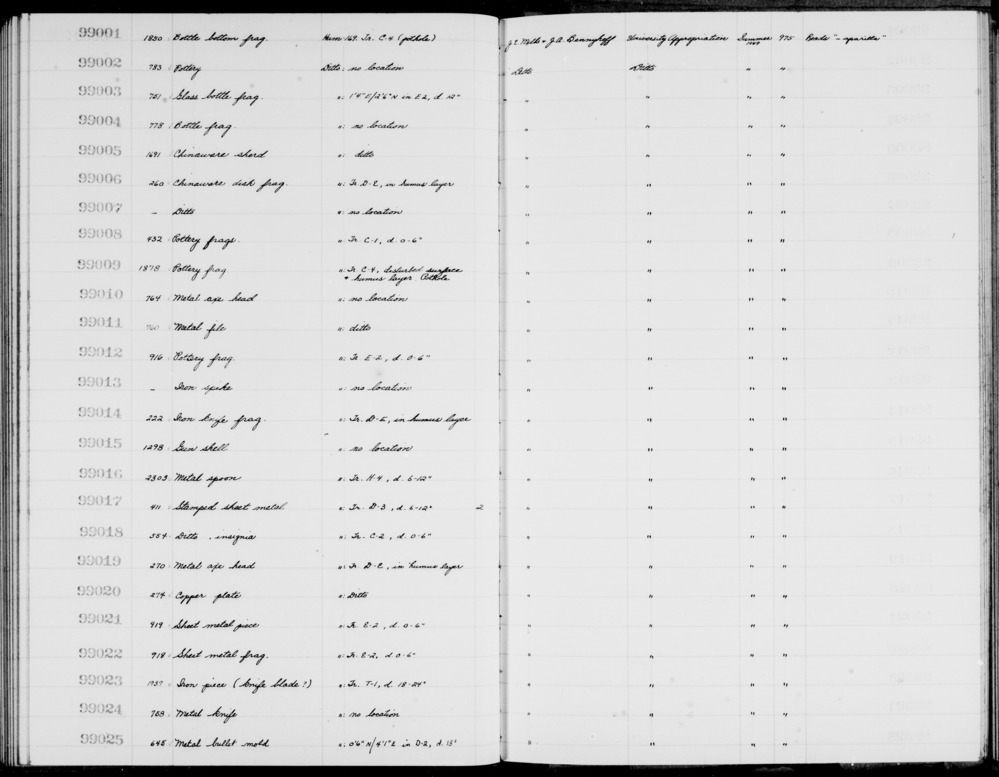 99001 1830 Bottle bottom frag. Hum 169. Tr. C-4 (pothole) J.E. Mills + J.A. Bennyhoff University Appropriation Summer 1949 975 Reads "-aparilla"
99002 783 Pottery Ditto: no location Ditto Ditto " "
99003 Glass bottle frag. ": 1'4" E/2'6" N in E2, d. 12" " " " "
99004 778 Bottle frag. ": no location " " " "
99005 1691 Chinaware sherd ": ditto " " " "
99006 260 Chinaware dish frag. ": Tr. D-E, in humus layer " " " "
99007 – Ditto ": no location " " " "
99008 432 Pottery frags. ": Tr. C-1, d. 0-6" " " " "
99009 1878 Pottery frag ": Tr. C-4, disturbed surface " " " "
+ humus layer. Pothole
99010 764 Metal axe head ": no location " " " "
99011 760 Metal file ": ditto " " " "
99012 916 Pottery frag. ": Tr. E-2, d. 0-6" " " " "
99013 – Iron spike ": no location " " " "
99014 222 Iron knife frag. ": Tr. D-E, in humus layer " " " "
99015 1298 Gun shell ": no location " " " "
99016 2303 Metal spoon ": Tr. H-4, d. 6-12" " " " "
99017 411 Stamped sheet metal ": Tr. D-3, d. 6-12" 2 " " " "
99018 354 Ditto, insignia ": Tr. C-2, d. 0-6" " " " "
99019 270 Metal axe head ": Tr. D-E, in humus layer " " " "
99020 274 Copper plate ": Ditto " " " "
99021 919 Sheet metal piece ": Tr. E-2, d. 0-6" " " " "
99022 918 Sheet metal frag. ": Tr. E-2, d. 0-6" " " " "
99023 Iron piece (knife blade?) ": Tr. T-1, d. 18-24" " " " "
99024 758 Metal knife ": no location " " " "
99025 645 Metal bullet mold ": 0'6" N/4'1" E in D-2, d. 13" " " " "